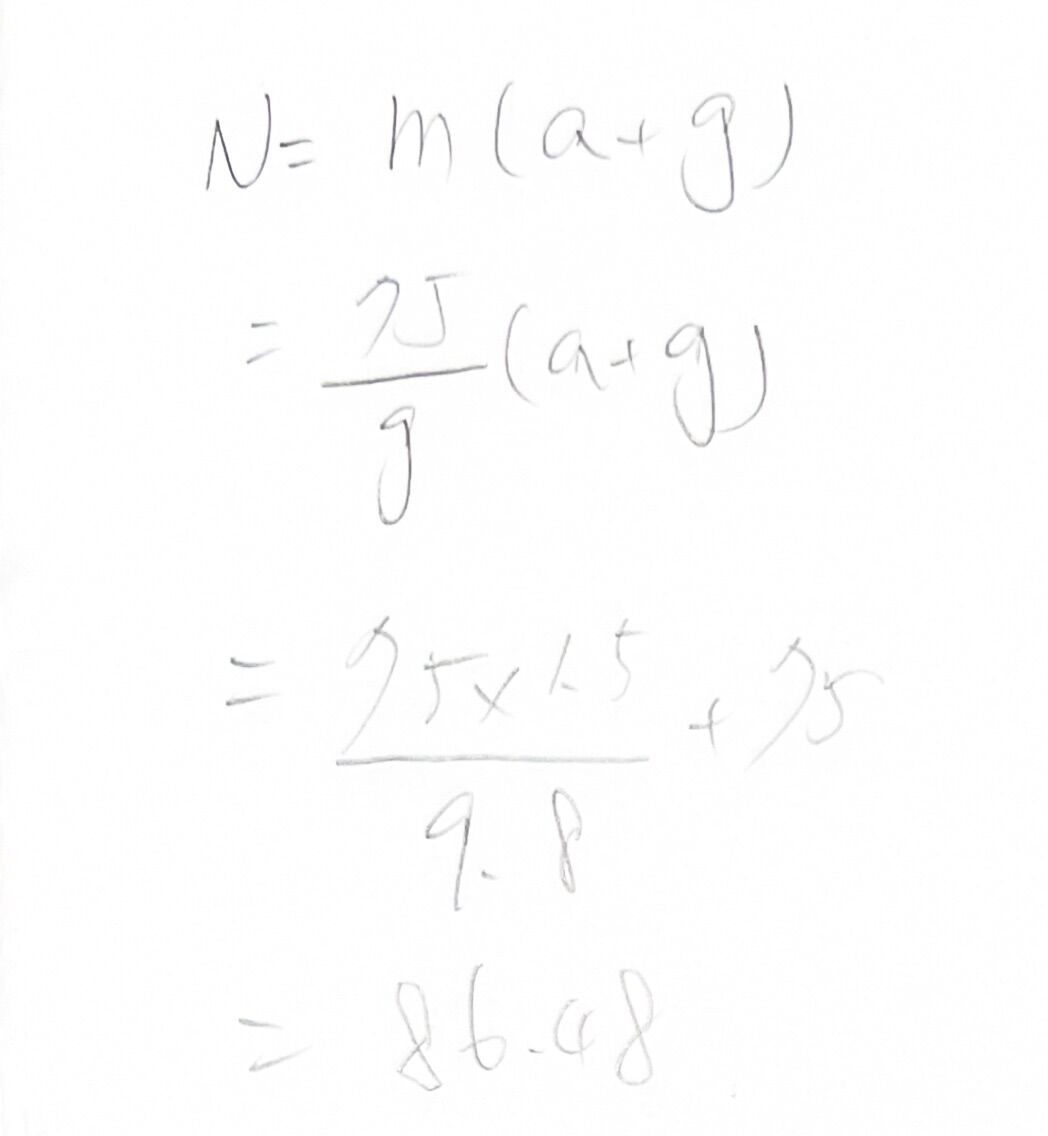 N = m (a + g)
= 75/g (a + g)
= 75 × 1.5 / 9.8 + 75
= 86.48